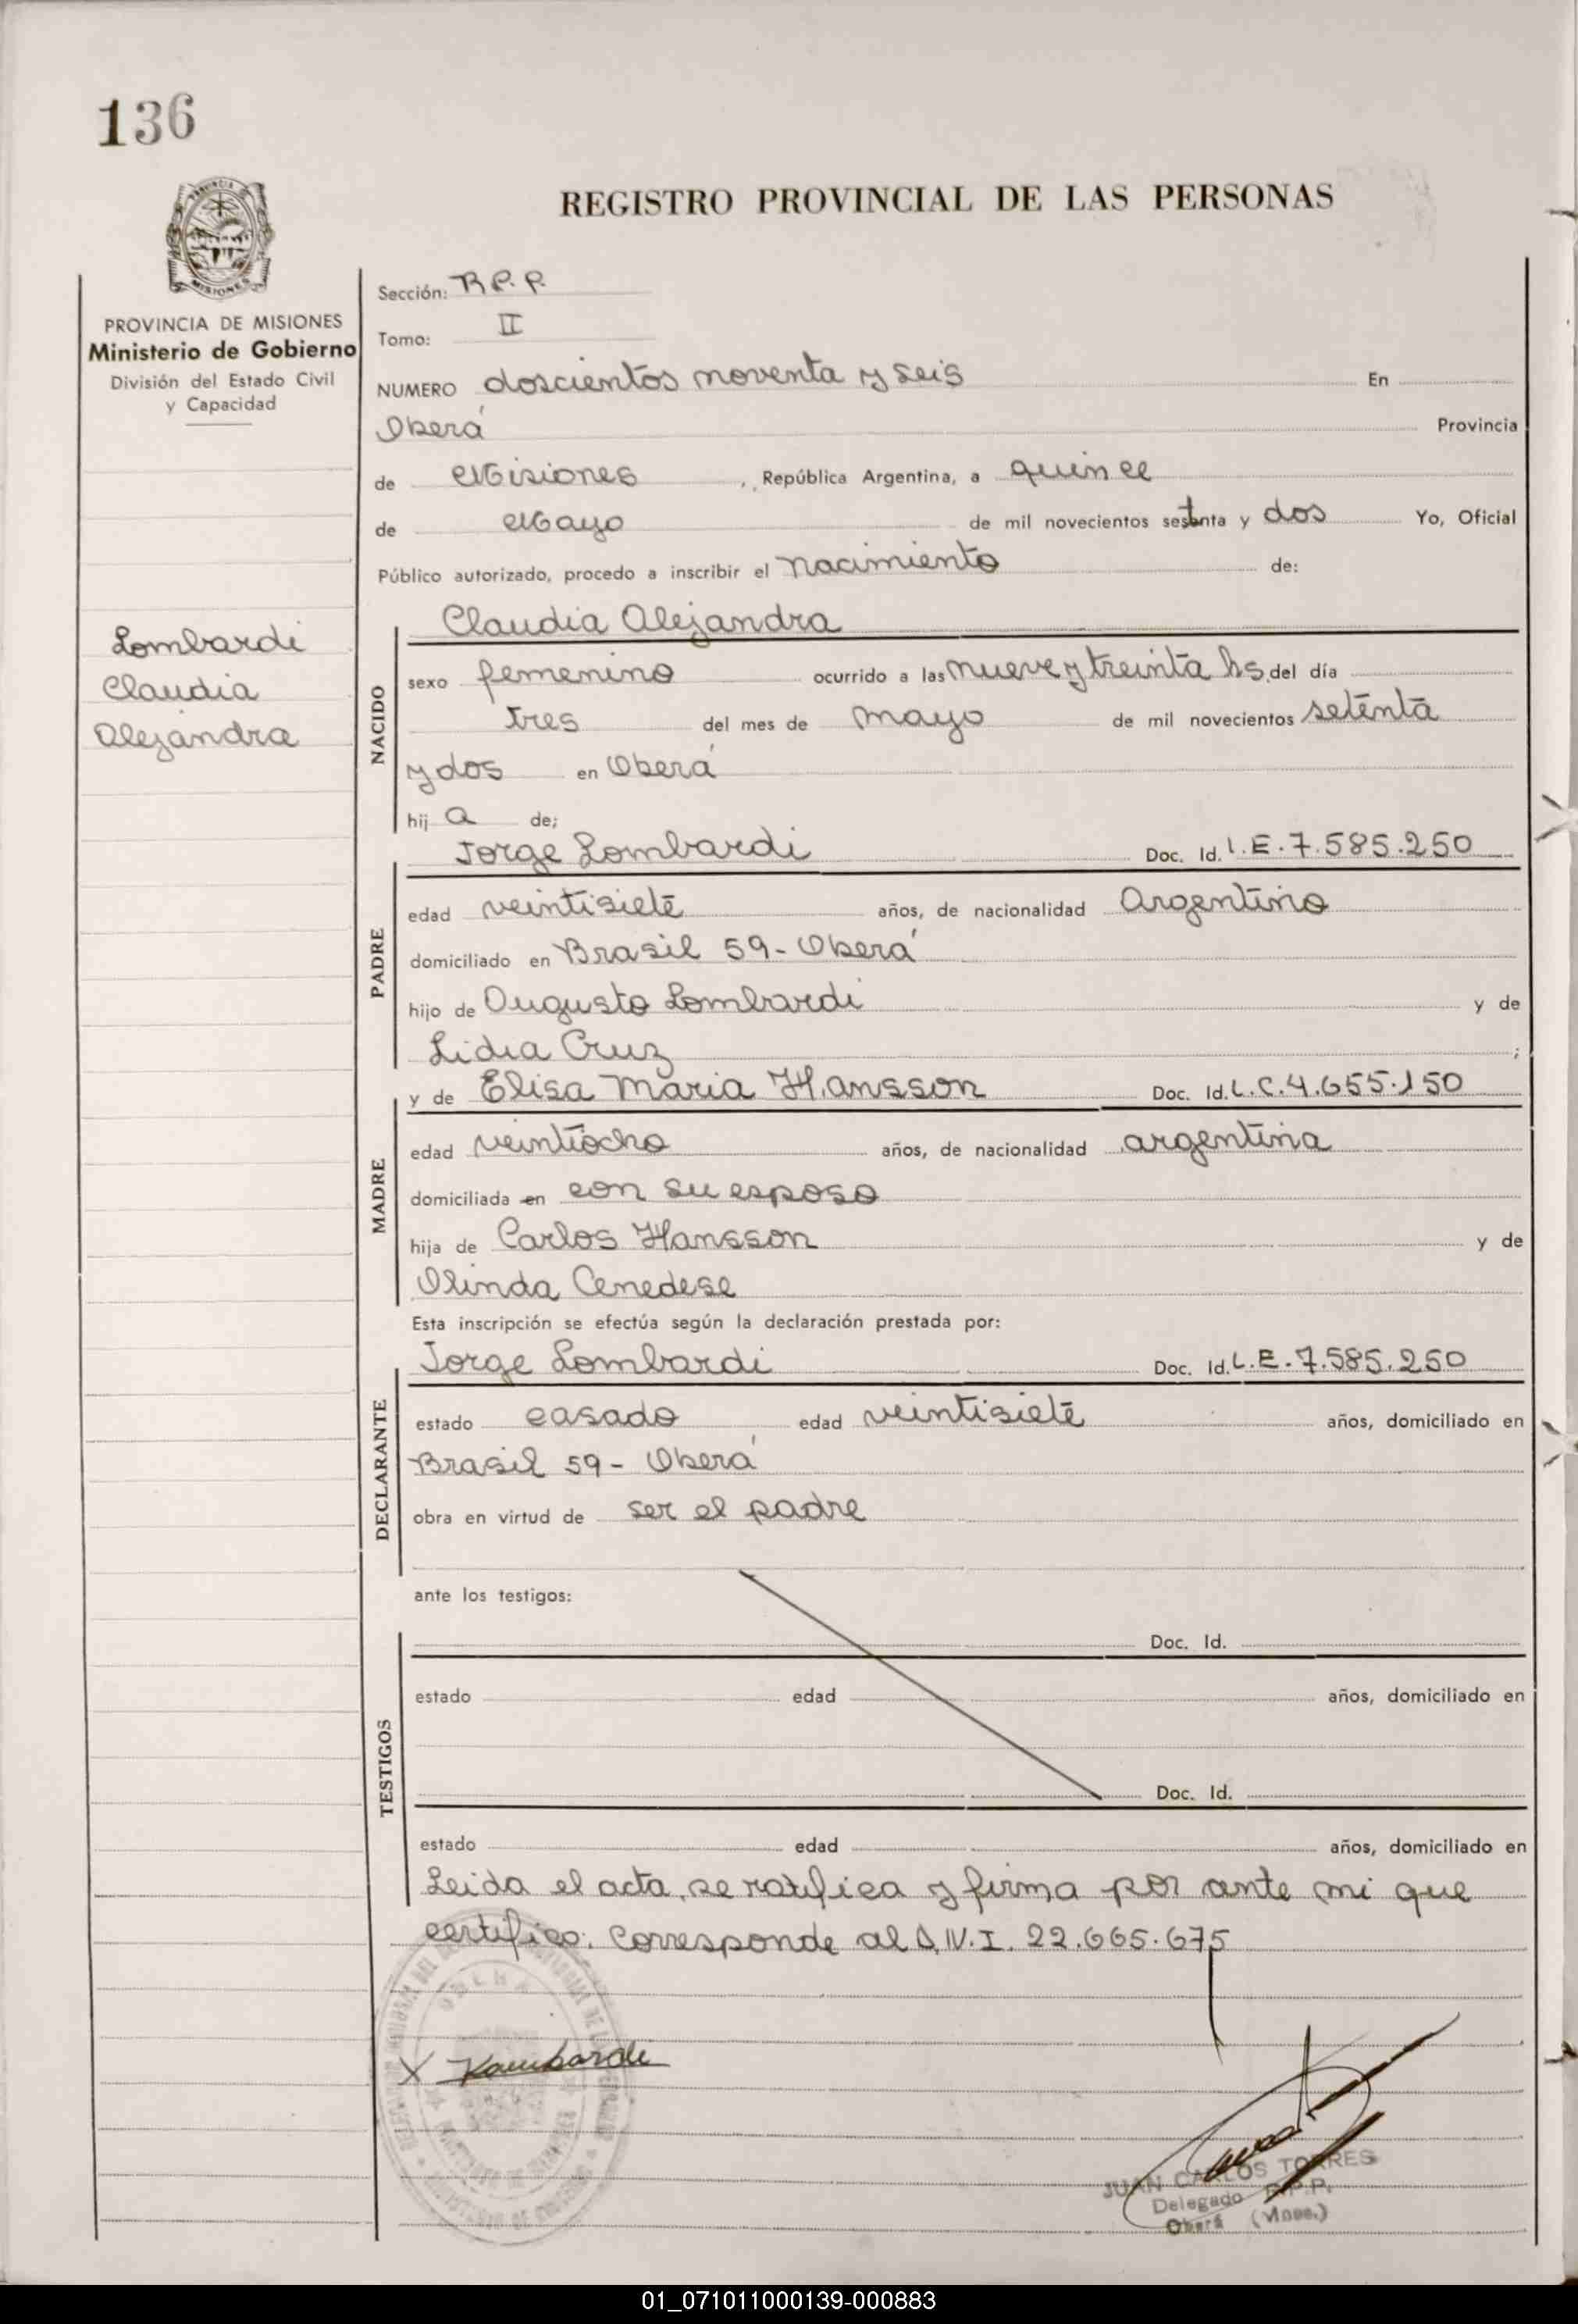 136
REGISTRO PROVINCIAL DE LAS PERSONAS
MISIONES
PROVINCIA DE MISIONES
Ministerio de Gobierno
División del Estado Civil
y Capacidad
Lombardi
Claudia
Alejandra
Sección: R.P.P.
Tomo: II
NUMERO doscientos noventa y seis En
Oberá Provincia
de Misiones, República Argentina, a quince
de Mayo de mil novecientos setenta y dos Yo, Oficial
Público autorizado, procedo a inscribir el nacimiento de:
Claudia Alejandra
NACIDO
sexo femenino ocurrido a las nueve y treinta hs. del día
tres del mes de mayo de mil novecientos setenta
y dos en Oberá
hij a de;
Jorge Lombardi Doc. Id. L.E.7.585.250
PADRE
edad veintisiete años, de nacionalidad Argentino
domiciliado en Brasil 59- Oberá
hijo de Augusto Lombardi y de
Lidia Cruz ;
y de Elisa Maria Hansson Doc. Id. L.C.4.655.150
MADRE
edad veintiocho años, de nacionalidad argentina
domiciliada en con su esposo
hija de Carlos Hansson y de
Olinda Cenedese
Esta inscripción se efectúa según la declaración prestada por:
Jorge Lombardi Doc. Id. L.E.7.585.250
DECLARANTE
estado casado edad veintisiete años, domiciliado en
Brasil 59- Oberá
obra en virtud de ser el padre
ante los testigos:
Doc. Id.
TESTIGOS
estado edad años, domiciliado en
Doc. Id.
estado edad años, domiciliado en
Leida el acta, se ratifica y firma por ante mi que
certifico. Corresponde al D.N.I. 22.665.675
X Lombardi
JUAN CARLOS TORRES
Delegado R.P.P.
Oberá (Mnes.)
01_071011000139-000883